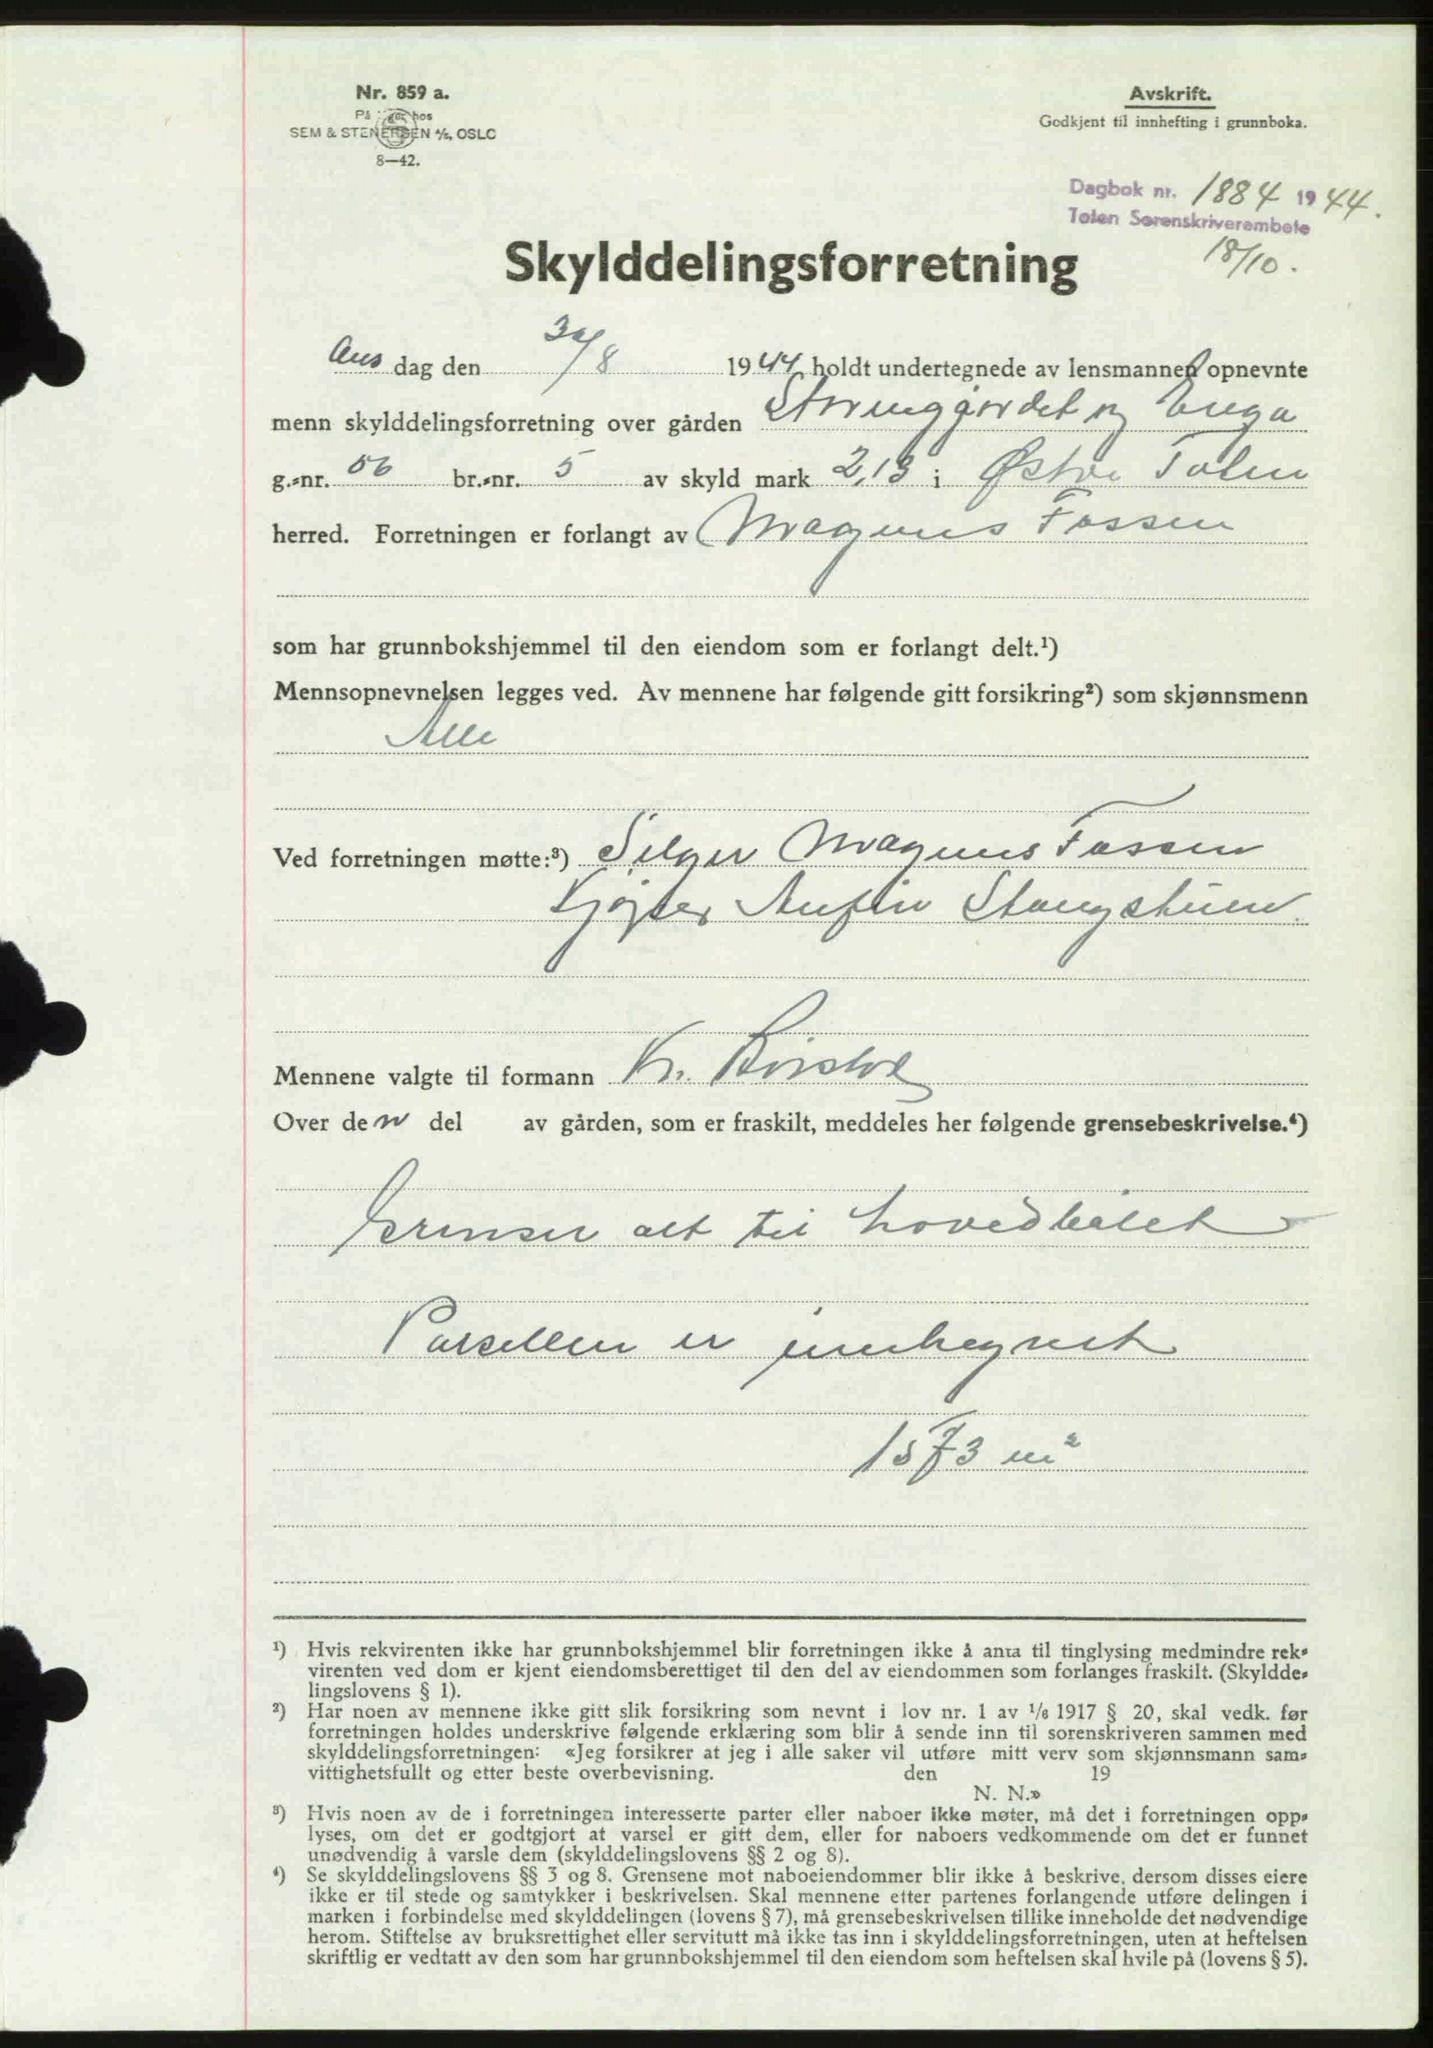 Nr. 859 a.
På lager hos
SEM & STENERSEN A/S, OSLO
8—42.
Avskrift.
Godkjent til innhefting i grunnboka.
Dagbok nr. 1884 1944.
Toten Sorenskriverembete
18/10.
Skylddelingsforretning
Ons dag den 30/8 1944 holdt undertegnede av lensmannen opnevnte
menn skylddelingsforretning over gården og Enga
g.-nr. 56 br.-nr. 5 av skyld mark 2,13 i Østre Toten
herred. Forretningen er forlangt av Magnus Fossen
som har grunnbokshjemmel til den eiendom som er forlangt delt.¹)
Mennsopnevnelsen legges ved. Av mennene har følgende gitt forsikring²) som skjønnsmenn
Alle
Ved forretningen møtte:³) Selger Magnus Fossen
Kjøper Anfin Stangstuen.
Mennene valgte til formann Kr.
Over den del av gården, som er fraskilt, meddeles her følgende grensebeskrivelse.⁴)
Grenser alt til hovedbølet
Parsellen er innhegnet
1573 m²
¹) Hvis rekvirenten ikke har grunnbokshjemmel blir forretningen ikke å anta til tinglysing medmindre rek-
virenten ved dom er kjent eiendomsberettiget til den del av eiendommen som forlanges fraskilt. (Skyldde-
lingslovens § 1).
²) Har noen av mennene ikke gitt slik forsikring som nevnt i lov nr. 1 av 1/6 1917 § 20, skal vedk. før
forretningen holdes underskrive følgende erklæring som blir å sende inn til sorenskriveren sammen med
skylddelingsforretningen: «Jeg forsikrer at jeg i alle saker vil utføre mitt verv som skjønnsmann sam-
vittighetsfullt og etter beste overbevisning. den 19
N. N.»
³) Hvis noen av de i forretningen interesserte parter eller naboer ikke møter, må det i forretningen opp-
lyses, om det er godtgjort at varsel er gitt dem, eller for naboers vedkommende om det er funnet
unødvendig å varsle dem (skylddelingslovens §§ 2 og 8).
⁴) Se skylddelingslovens §§ 3 og 8. Grensene mot naboeiendommer blir ikke å beskrive, dersom disses eiere
ikke er til stede og samtykker i beskrivelsen. Skal mennene etter partenes forlangende utføre delingen i
marken i forbindelse med skylddelingen (lovens § 7), må grensebeskrivelsen tillike inneholde det nødvendige
herom. Stiftelse av bruksrettighet eller servitutt må ikke tas inn i skylddelingsforretningen, uten at heftelsen
skriftlig er vedtatt av den som har grunnbokshjemmel til den eiendom som heftelsen skal hvile på (lovens § 5).